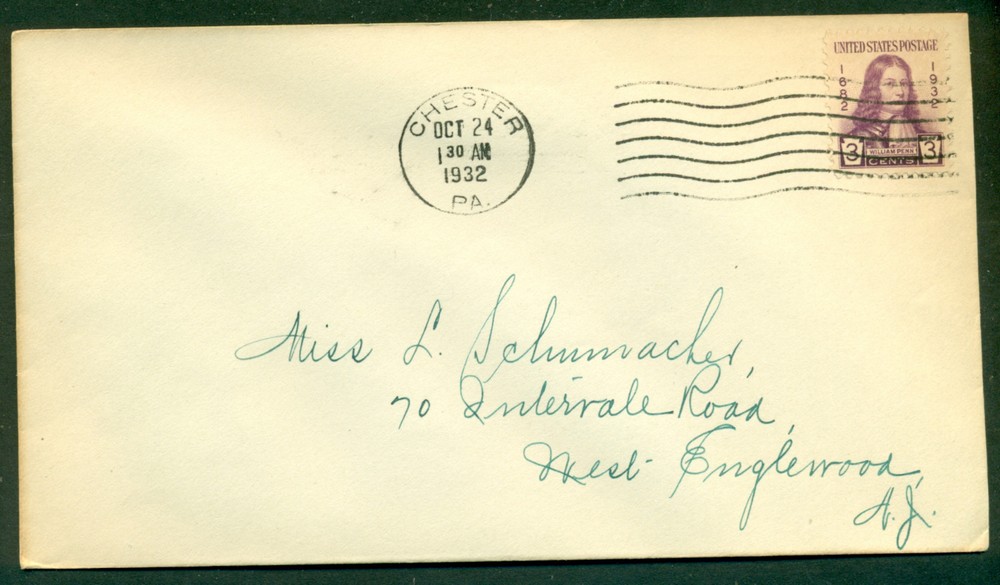 CHESTER
OCT 24
1 30 AM
1932
PA.
UNITED STATES POSTAGE
1682
1932
WILLIAM PENN
3 CENTS 3
Miss L. Schumacher,
70 Intervale Road,
West Englewood,
N.J.